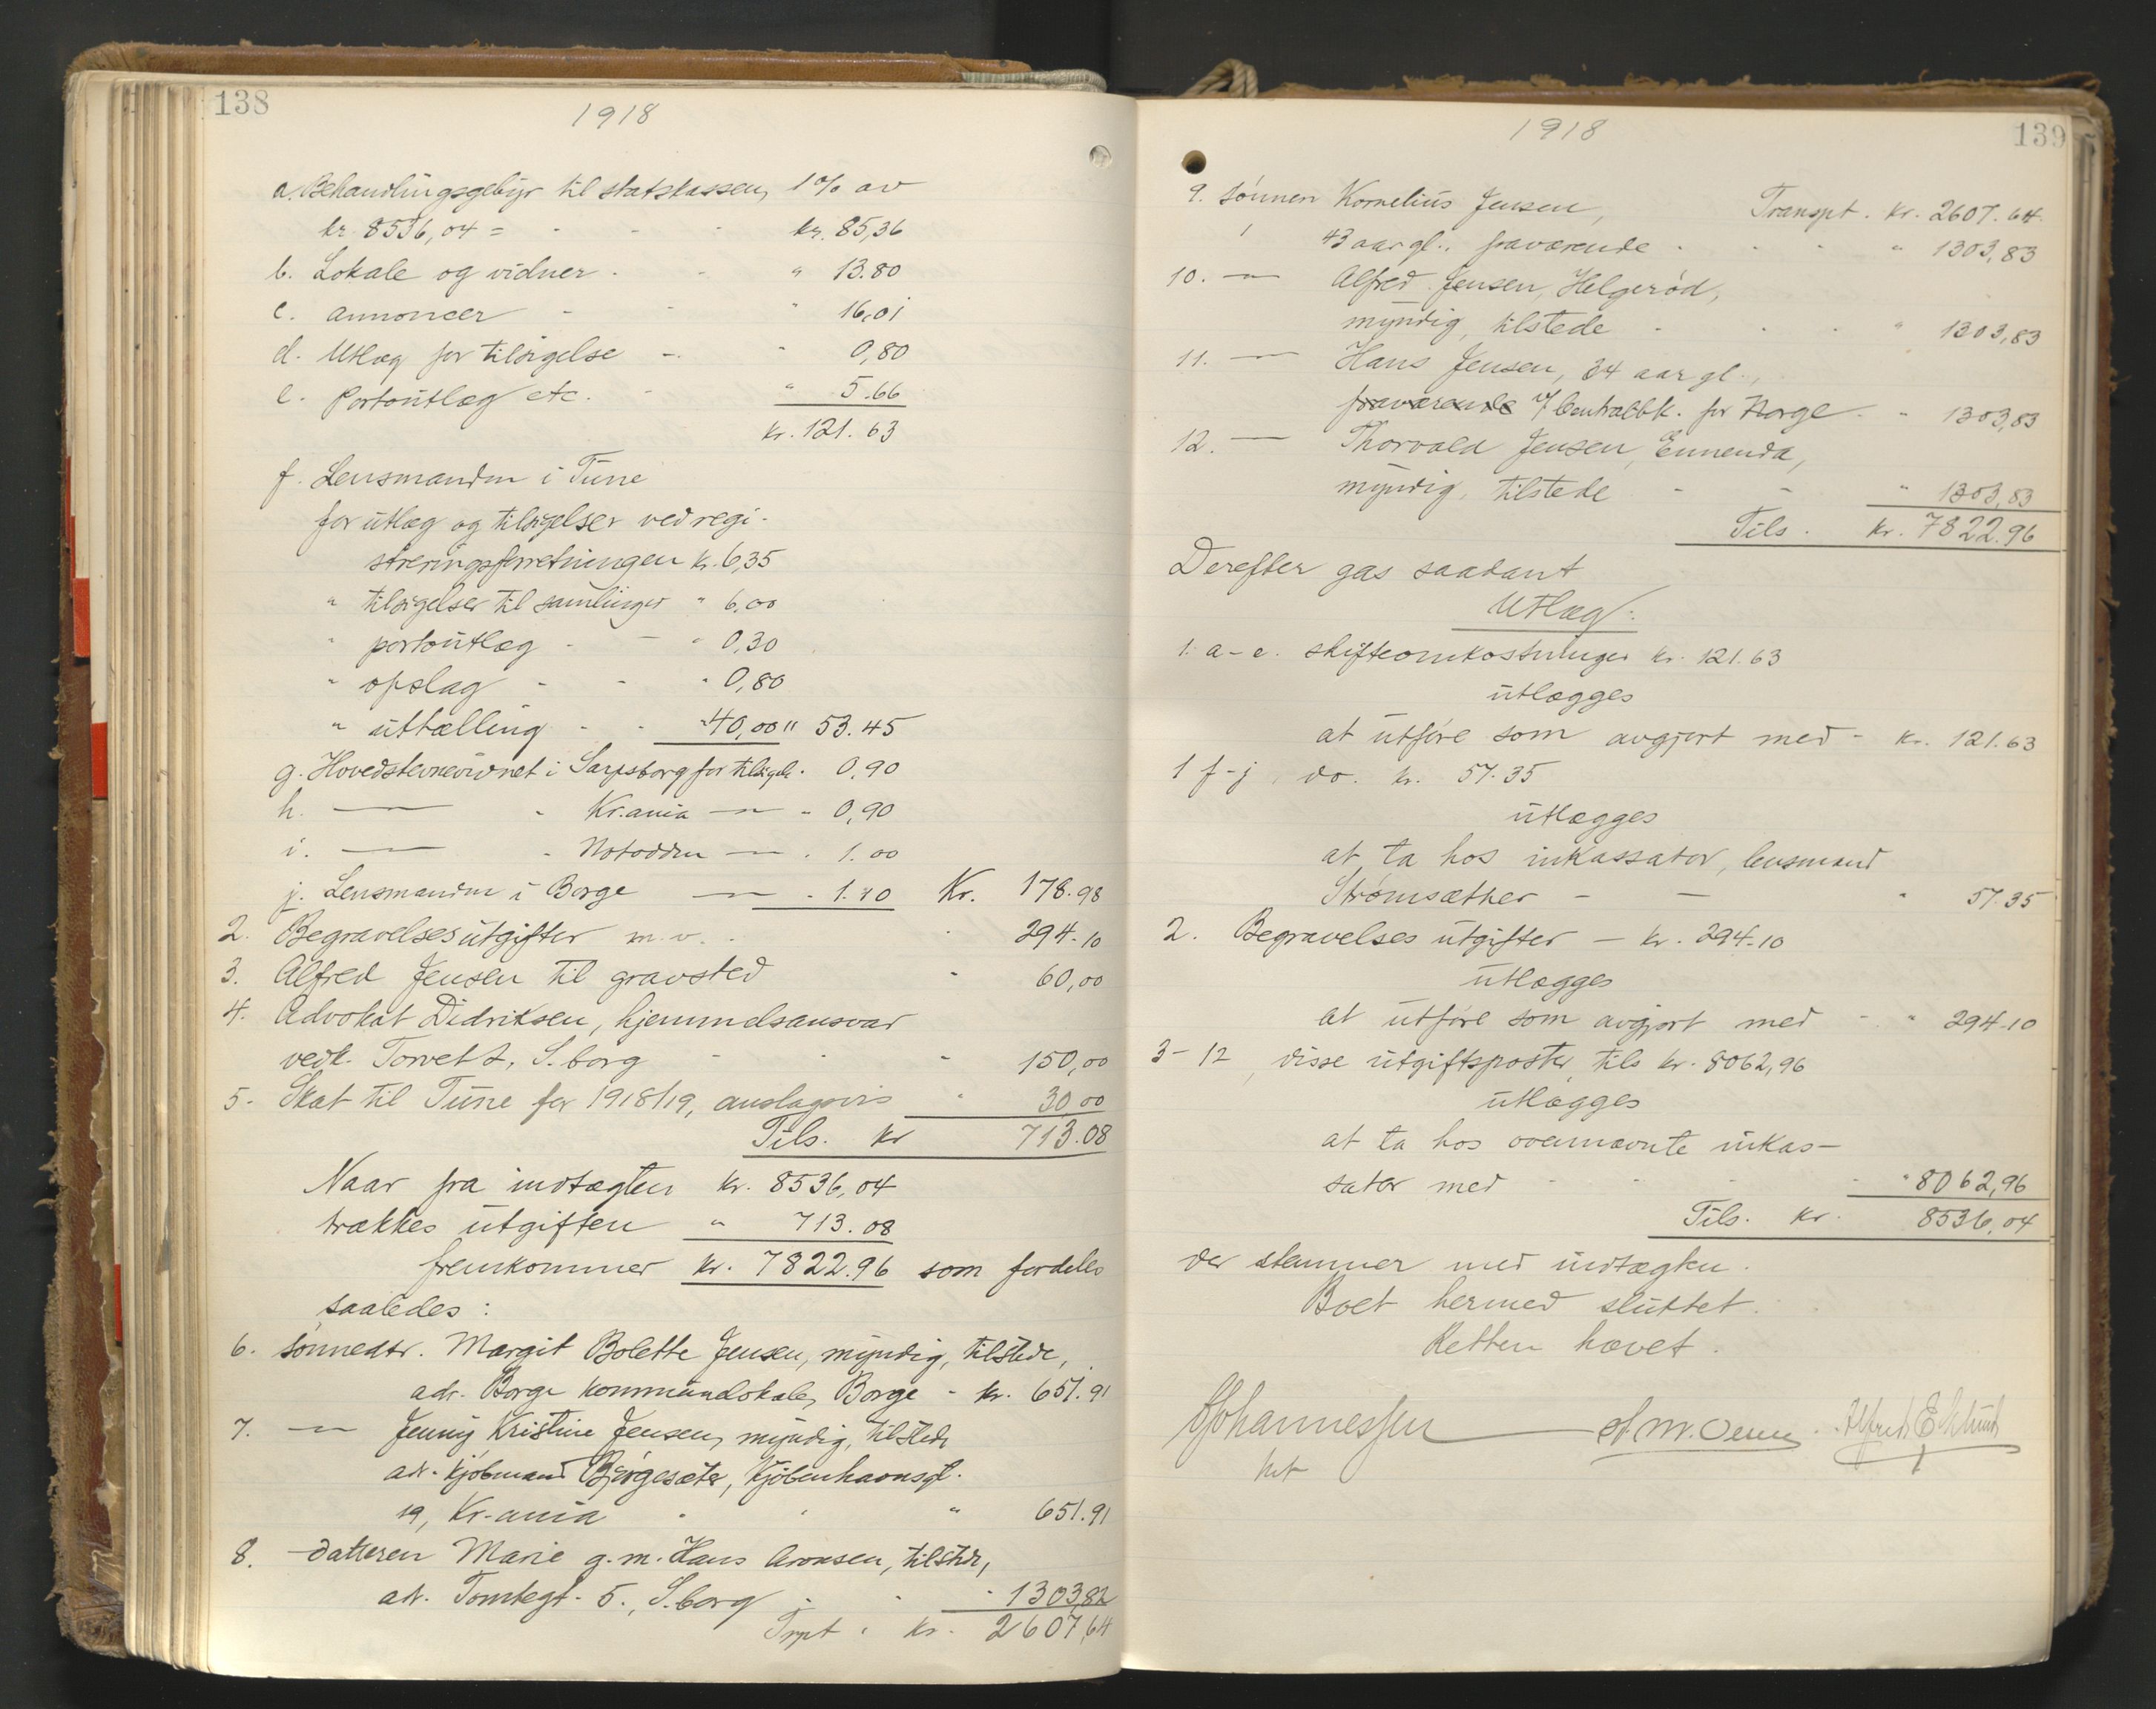 138
1918
a. Behandlingsgebyr til statskassen, 1% av
kr. 8536,04 = - - - kr. 85,36
b. Lokale og vidner - - " 13.80
c. annoncer - - " 16,01
d. Utlæg for tilsigelse - - " 0,80
e. Portoutlæg etc. - " 5.66
kr. 121.63
f. Lensmanden i Tune
for utlæg og tilsigelser ved regi-
streringsforretningen kr. 6,35
" tilsigelser til samlinger " 6.00
" portoutlæg - - " 0,30
" opslag - - " 0,80
" uttælling - - " 40,00 " 53.45
g. Hovedstevnevidnet i Sarpsborg for tilsigelse - 0.90
h. — " Kr.ania — " 0,90
i. — " Notodden — " 1.00
j. Lensmanden i Borge — - 1.10 Kr. 178.98
2. Begravelsesutgifter m.v. - " 294.10
3. Alfred Jensen til gravsted " 60,00
4. Advokat Didriksen, hjemmelsansvar
vedk. Torvet 2, S.borg - - " 150,00
5. Skat til Tune for 1918/19, anslagsvis " 30,00
Tils. kr 713.08
Naar fra indtægten kr. 8536,04
trækkes utgiften " 713.08
fremkommer kr. 7822.96 som fordeles
saaledes:
6. sønnedtr. Margit Bolette Jensen, myndig, tilstede,
adr. Borge kommunelokale, Borge - kr. 651.91
7. — Jenny Kristine Jensen, myndig, tilstede
adr. kjøbmand Bjørgesæter, Kjøbenhavnsgt.
19, Kr-ania " " " 651.91
8. datteren Marie g.m. Hans Aronsen, tilstede,
adr. Tomtegt. 5., S.borg - - " 1303,82
Trpt. kr. 2607,64
139
1918
9. sønnen Kornelius Jensen, Transpt. kr. 2607.64
43 aar gl., fraværende - - - " 1303,83
10. — Alfred Jensen, Helgerød,
myndig, tilstede - - - " 1303,83
11. — Hans Jensen, 34 aar gl.,
fraværende % Centralbk. for Norge - " 1303,83
12. — Thorvald Jensen, Ennenda,
myndig, tilstede - - " 1303,83
Tils. kr. 7822.96
Derefter gas saadant
Utlæg:
1. a-e. skifteomkostninger kr. 121.63
utlægges
at utføre som avgjort med - kr. 121.63
1 f-j, do. kr. 57.35
utlægges
at ta hos inkassator, lensmand
Strømsæther - - " 57.35
2. Begravelses utgifter - kr. 294.10
utlægges
at utføre som avgjort med - " 294.10
3-12, disse utgiftsposter, tils kr. 8062,96
utlægges
at ta hos ovennævnte inkas-
sator med - - - - " 8062,96
Tils. kr. 8536,04
der stemmer med indtægten.
Boet hermed sluttet.
Retten hævet.
Johannessen